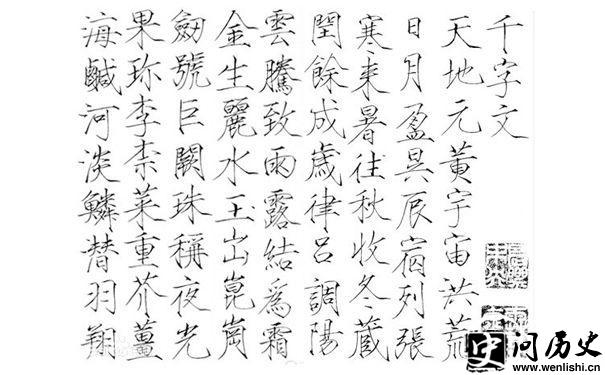 千字文
天地元黃宇宙洪荒
日月盈昃辰宿列張
寒来暑往秋收冬藏
閏餘成歲律呂調陽
雲騰致雨露結爲霜
金生麗水玉出崑崗
劒號巨闕珠稱夜光
果珎李柰菜重芥薑
海鹹河淡鱗潜羽翔
史问历史
www.wenlishi.cn